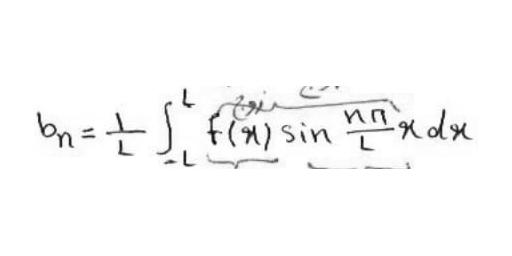 bn = 1/L ∫_{-L}^{L} f(x) sin nπ/L x dx